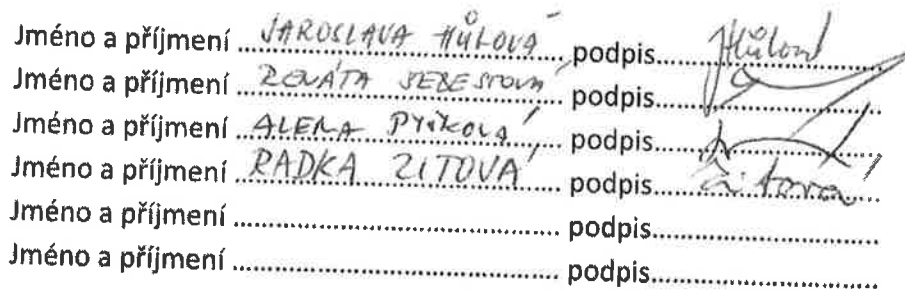 Jméno a příjmení JAROSLAVA HŮLOVÁ podpis Hůlová
Jméno a příjmení RENÁTA podpis
Jméno a příjmení ALENA podpis
Jméno a příjmení RADKA ZITOVÁ podpis
Jméno a příjmení podpis
Jméno a příjmení podpis